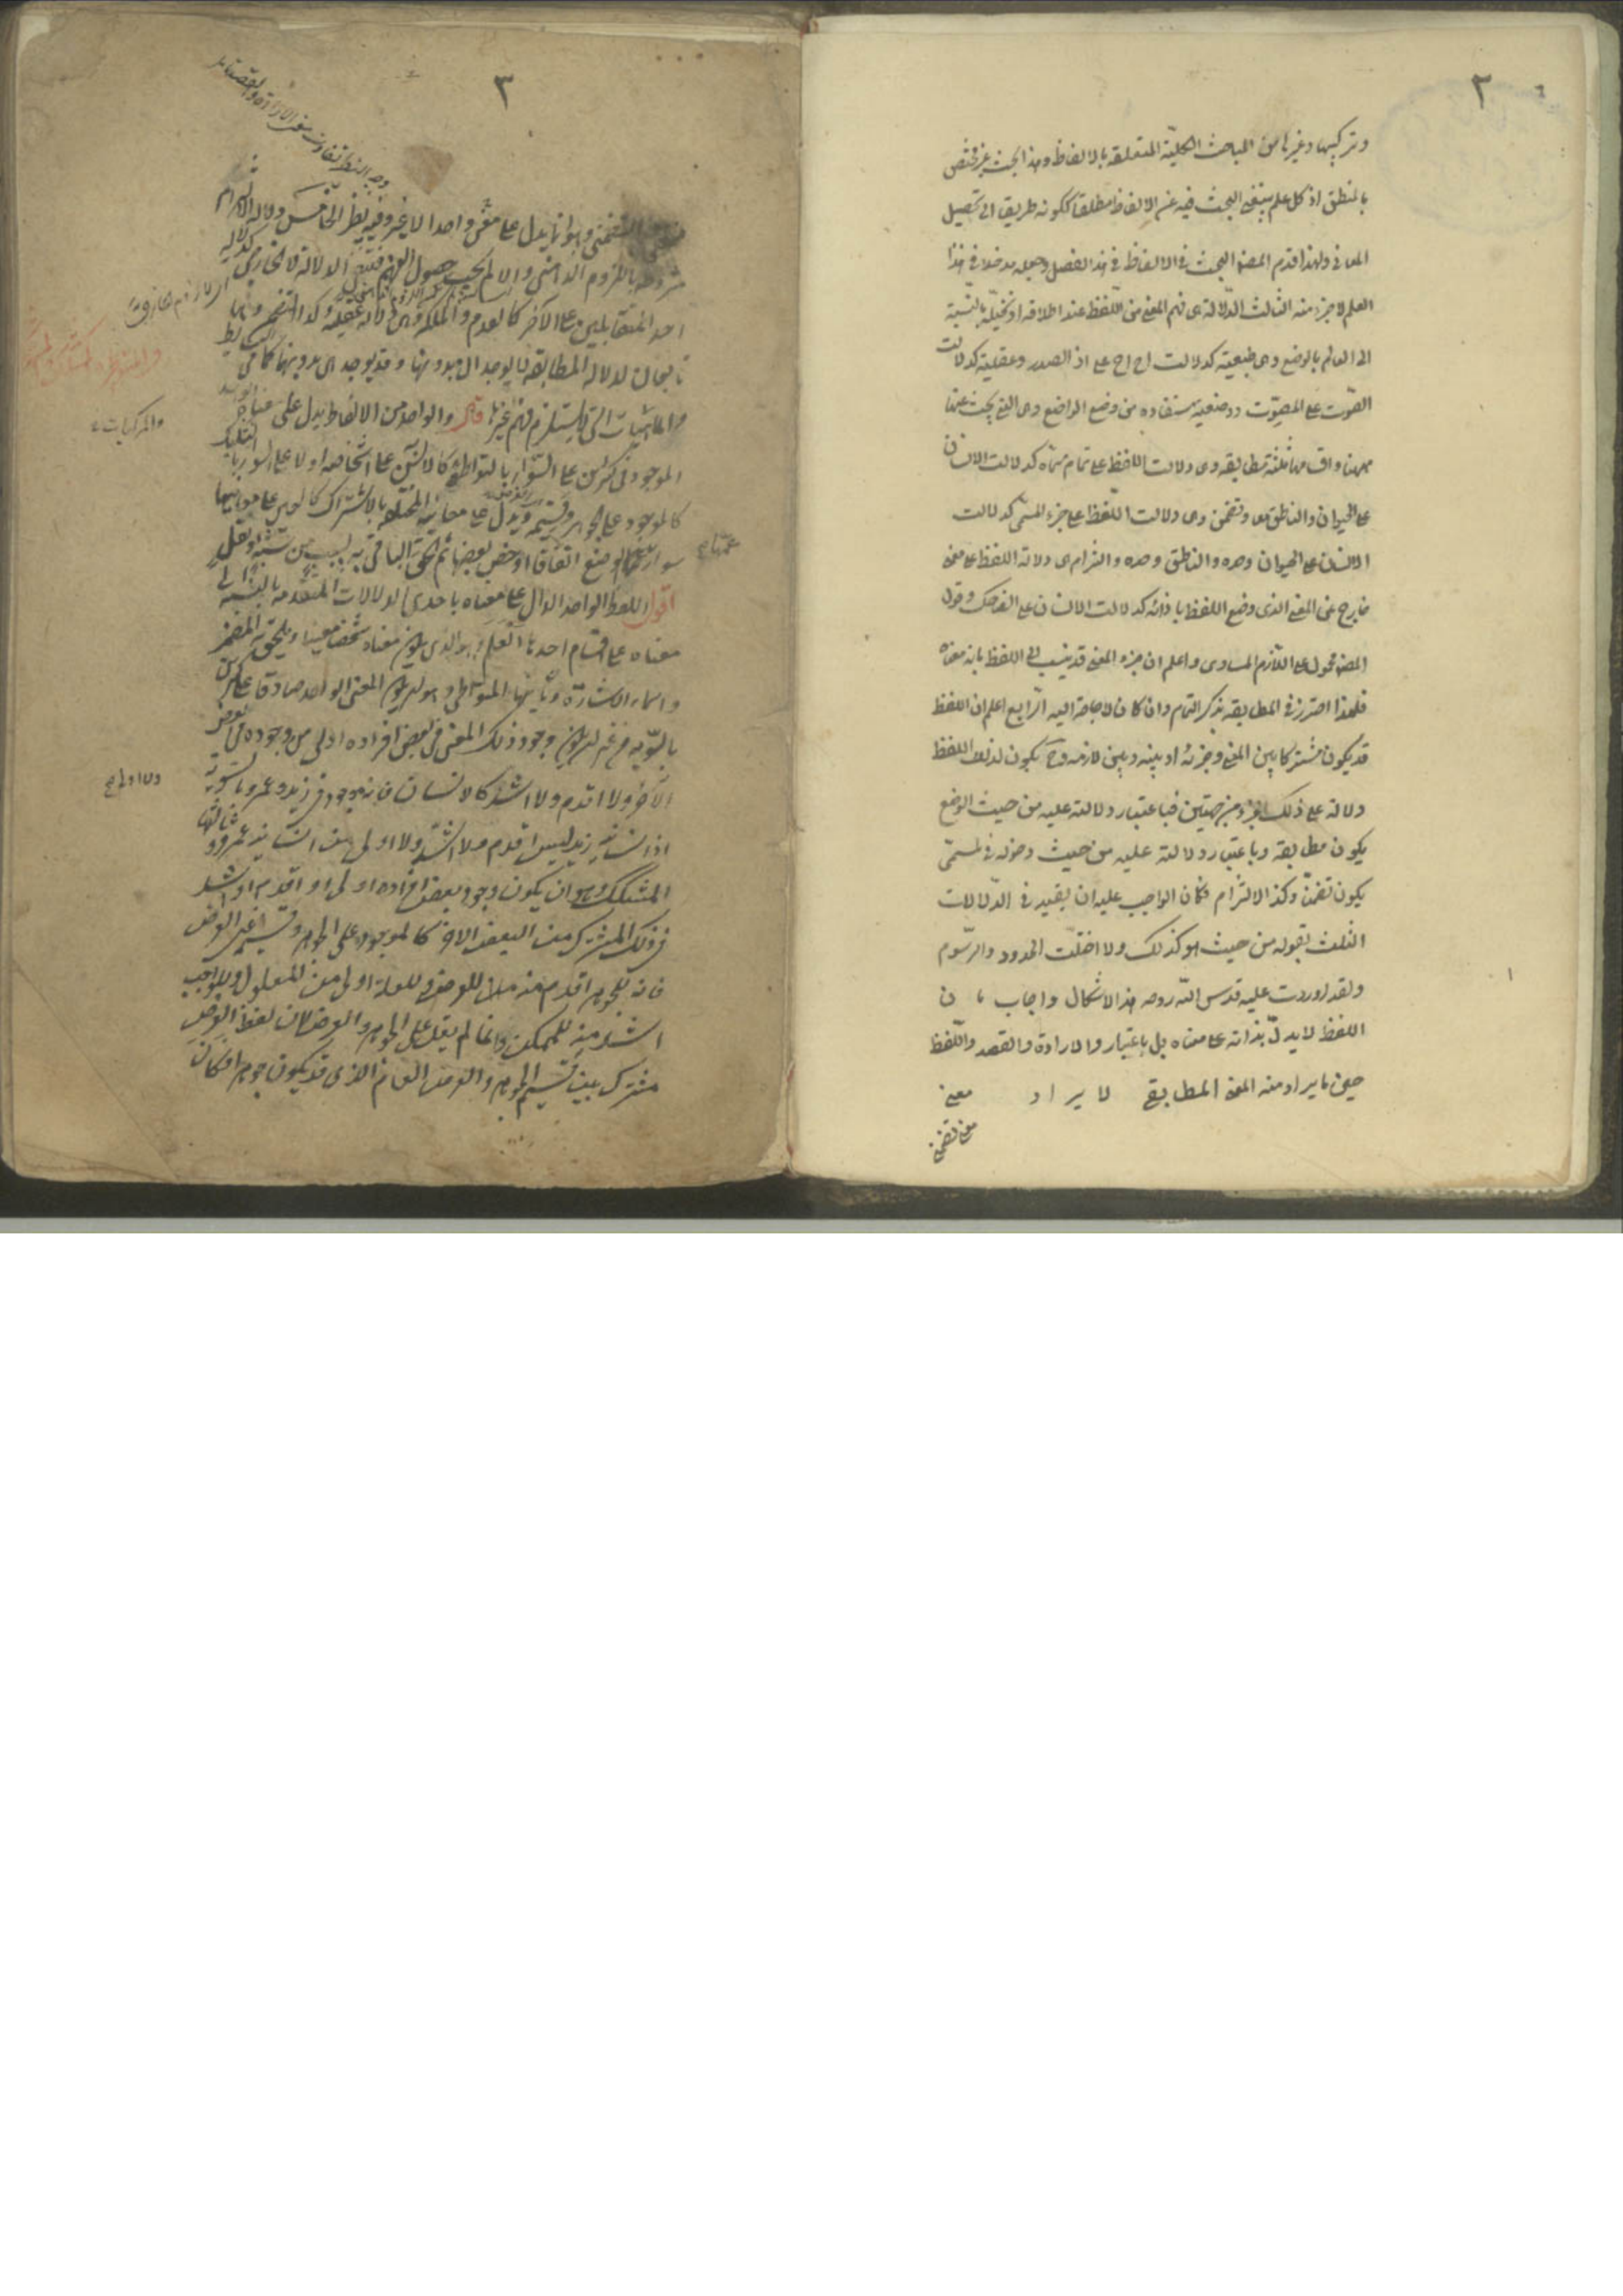 ٢
وتركيبها وغيرها من المباحث الكلية المتعلقة بالالفاظ وهذا البحث غير مختص
بالمنطق اذ كل علم ينبغي البحث فيه عن الالفاظ مطلقا لكونه طريقا الى تحصيل
المعاني ولهذا قدم المصنف البحث في الالفاظ في هذا الفصل وجعله مدخلا في هذا
العلم لا جزء منه الثالث الدلالة هي فهم المعنى من اللفظ عند اطلاقه او تخيله بالنسبة
الى العالم بالوضع وهي طبيعية كدلالت اح اح على اذى الصدر وعقلية كدلالت
الصوت على المصوت ووضعية مستفاده من وضع الواضع وهي التي يبحث عنها
ههنا واقسامها ثلثة مطابقه وهي دلالت اللفظ على تمام مسماه كدلالت الانسان
على الحيوان والناطق معا وتضمن وهي دلالت اللفظ على جزء المسمى كدلالت
الانسان على الحيوان وحده والناطق وحده والتزام هي دلالة اللفظ على معنى
خارج عن المعنى الذي وضع اللفظ بازائه كدلالت الانسان على الضحك وقول
المصنف محمول على اللازم المساوي واعلم ان جزء المعنى قد ينسب الى اللفظ بانه معناه
فلهذا احترز في المطابقه بذكر التمام وان كان لا حاجة اليه الرابع اعلم ان اللفظ
قد يكون مشتركا بين المعنى وجزئه او بينه وبين لازمه وح يكون لذلك اللفظ
دلالة على ذلك الجزء من جهتين فباعتبار دلالته عليه من حيث الوضع
يكون مطابقة وباعتبار دلالته عليه من حيث دخوله في المسمى
يكون تضمنا وكذا الالتزام فكان الواجب عليه ان يقيد في الدلالات
الثلث بقوله من حيث هو كذلك ولا اختلت الحدود والرسوم
ولقد اوردت عليه قدس الله روحه هذا الاشكال واجاب بان
اللفظ لا يدل بذاته على معناه بل باعتبار والارادة والقصد واللفظ
حين ما يراد منه المعنى المطابقي لا يراد معنى
٣
التضمني وهو انما يدل على معنى واحد لا غير وفيه نظر الخامس دلالة الالتزام
مشروطه باللزوم الذهني والا لم يجب حصول الفهم
احد المتقابلين على الاخر كالعدم والملكة
تابعان لدلالة المطابقه لا يوجدان بدونها وقد يوجد هي بدونهما كما في البسايط
والماهيات التي لا يستلزم فهم غيرها قال والواحد من الالفاظ يدل على معناه
الموجود في كثيرين على السواء بالتواطئ كالانسان على اشخاصه او لا على السواء بالتشكيك
كالموجود على الجوهر وقسيمه ويدل على معانيه المختلفه بالاشتراك كالعين على معانيها
سواء عمها الوضع اتفاقا او خص بعضها ثم الحق الباقي به لسبب من شبه او نقل
اقول اللفظ الواحد الدال على معناه باحدى الدلالات المتقدمه بالنسبه الى
معناه على اقسام احدها العلم وهو الذي يكون معناه شخصا معينا ويلحق به المضمر
واسماء الاشارة وثانيها المتواطي وهو ان يكون المعنى الواحد صادقا على كثيرين
بالسويه من غير ان يكون وجود ذلك المعنى في بعض افراده اولى من وجوده في بعض
الآخر ولا اقدم ولا اشد كالانسان فانه موجود في زيد وعمرو بالسوية
اذ انسانية زيد ليس اقدم ولا اشد ولا اولى من انسانية عمرو وثالثها
المشكك وهو ان يكون وجود بعض افراده اولى او اقدم او اشد
في ذلك المشترك من البعض الاخر كالموجود على الجوهر وقسيمه اعني العرض
فانه للجوهر اقدم منه للعرض وللعلة اولى من المعلول وللواجب
اشد منه للممكن وانما لم يقل على الجوهر والعرض لان لفظ العرض
مشترك بين قسيم الجوهر والعرض العام الذي قد يكون جوهرا فكان